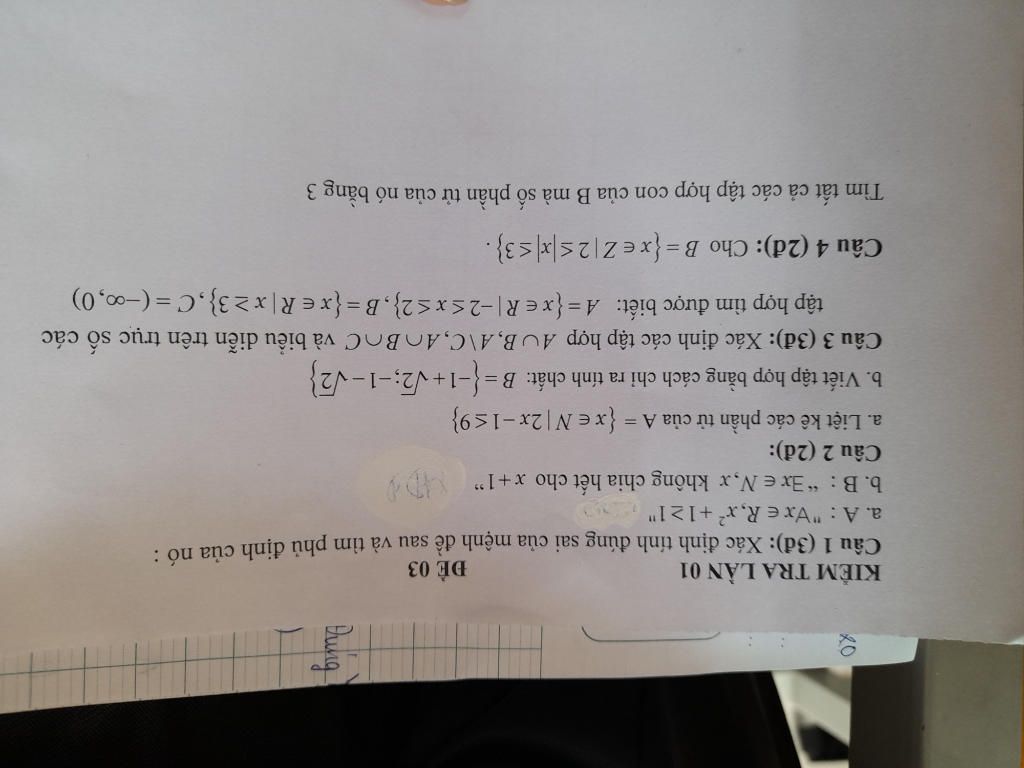 KIỂM TRA LẦN 01 ĐỀ 03
Câu 1 (3đ): Xác định tính đúng sai của mệnh đề sau và tìm phủ định của nó :
a. A : "∀x ∈ R, x² +1 ≥ 1"
b. B : “ ∃x ∈ N, x không chia hết cho x +1”
Câu 2 (2đ):
a. Liệt kê các phần tử của A = {x ∈ N | 2x −1 ≤ 9}
b. Viết tập hợp bằng cách chỉ ra tính chất: B = {−1+ √2; −1− √2}
Câu 3 (3đ): Xác định các tập hợp A ∪ B, A \ C, A ∩ B ∩ C và biểu diễn trên trục số các
tập hợp tìm được biết: A = {x ∈ R | −2 ≤ x ≤ 2}, B = {x ∈ R | x ≥ 3}, C = (−∞, 0)
Câu 4 (2đ): Cho B = {x ∈ Z | 2 ≤ |x| ≤ 3} .
Tìm tất cả các tập hợp con của B mà số phần tử của nó bằng 3
20
Đúng